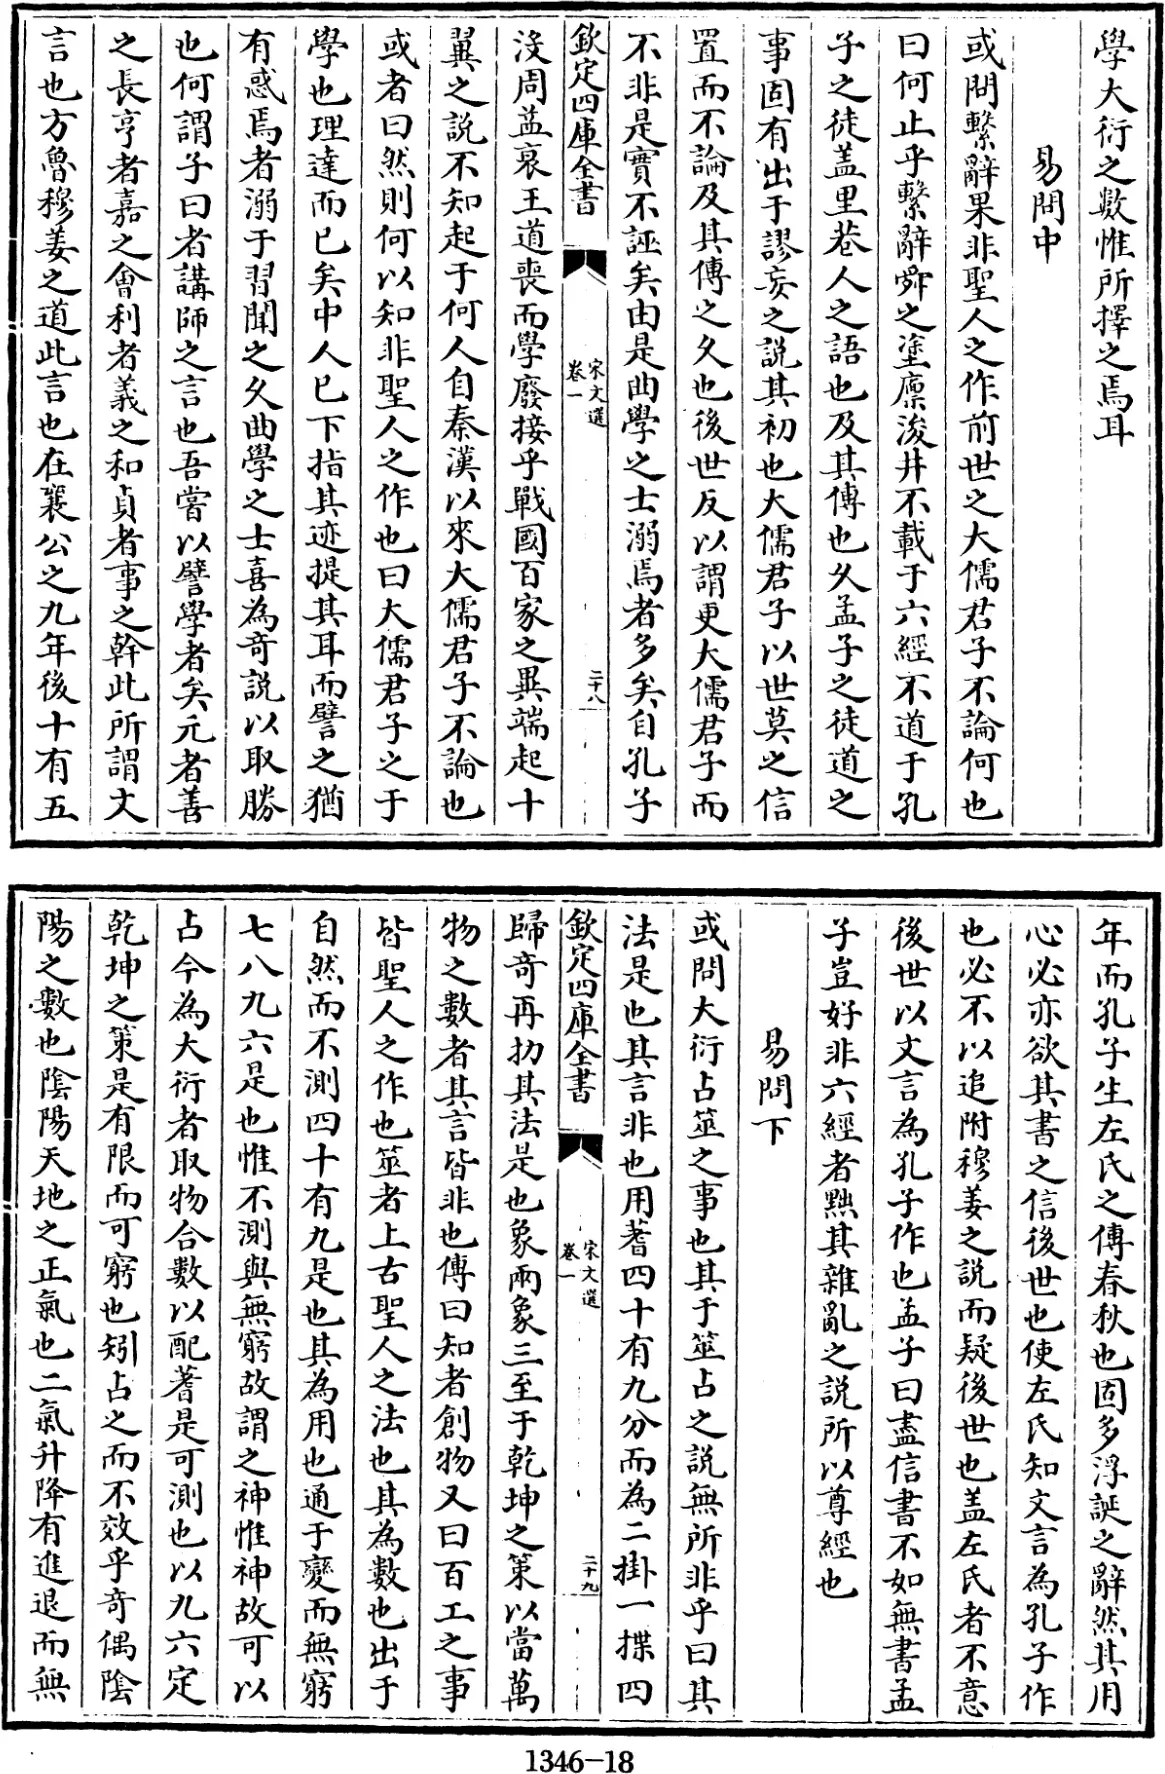 學大衍之數惟所擇之焉耳
易問中
或問繫辭果非聖人之作前世之大儒君子不論何也
曰何止乎繫辭舜之塗廪浚井不載于六經不道于孔
子之徒盖里巷人之語也及其傳也久孟子之徒道之
事固有出于謬妄之説其初也大儒君子以世莫之信
置而不論及其傳之久也後世反以謂更大儒君子而
不非是實不誣矣由是曲學之士溺焉者多矣自孔子
欽定四庫全書
宋文選
卷一
二十八
沒周益衰王道喪而學廢接乎戰國百家之異端起十
翼之說不知起于何人自秦漢以來大儒君子不論也
或者曰然則何以知非聖人之作也曰大儒君子之于
學也理達而已矣中人已下指其迹提其耳而譬之猶
有惑焉者溺于習聞之久曲學之士喜為奇說以取勝
也何謂子曰者講師之言也吾嘗以譬學者矣元者善
之長亨者嘉之會利者義之和貞者事之幹此所謂文
言也方魯穆姜之道此言也在襄公之九年後十有五
年而孔子生左氏之傳春秋也固多浮誕之辭然其用
心必亦欲其書之信後世也使左氏知文言為孔子作
也必不以追附穆姜之說而疑後世也盖左氏者不意
後世以文言為孔子作也孟子曰盡信書不如無書孟
子豈好非六經者黜其雜亂之說所以尊經也
易問下
或問大衍占筮之事也其于筮占之說無所非乎曰其
法是也其言非也用蓍四十有九分而為二掛一揲四
欽定四庫全書
宋文選
卷一
二十九
歸奇再扐其法是也象兩象三至于乾坤之策以當萬
物之數者其言皆非也傳曰知者創物又曰百工之事
皆聖人之作也筮者上古聖人之法也其為數也出于
自然而不測四十有九是也其為用也通于變而無窮
七八九六是也惟不測與無窮故謂之神惟神故可以
占今為大衍者取物合數以配蓍是可測也以九六定
乾坤之策是有限而可窮也矧占之而不效乎奇偶陰
陽之數也陰陽天地之正氣也二氣升降有進退而無
1346—18